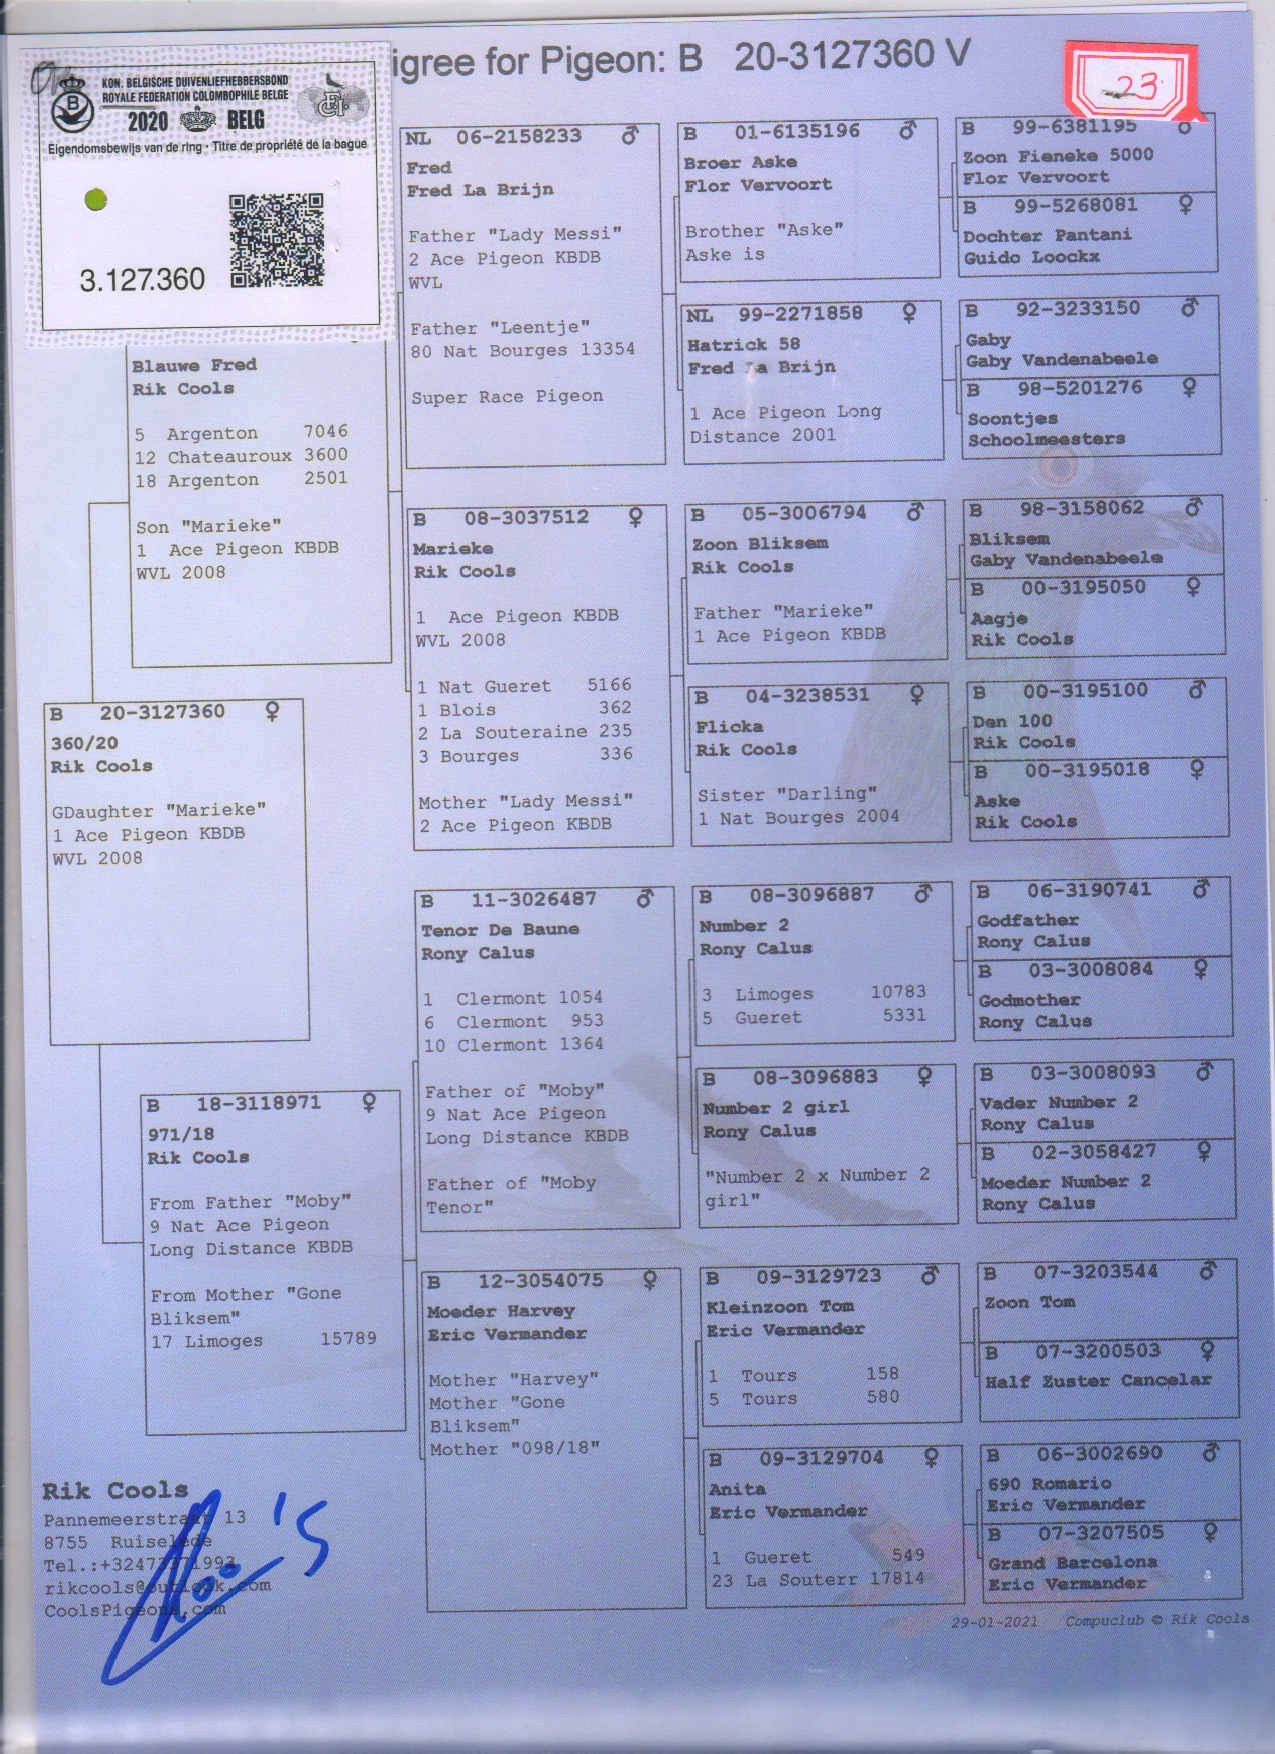 igree for Pigeon: B 20-3127360 V
23
KON. BELGISCHE DUIVENLIEFHEBBERSBOND
ROYALE FEDERATION COLOMBOPHILE BELGE
2020 BELG
Eigendomsbewijs van de ring - Titre de propriété de la bague
3.127.360
Blauwe Fred
Rik Cools
5 Argenton 7046
12 Chateauroux 3600
18 Argenton 2501
Son "Marieke"
1 Ace Pigeon KBDB
WVL 2008
B 20-3127360 ♀
360/20
Rik Cools
GDaughter "Marieke"
1 Ace Pigeon KBDB
WVL 2008
B 18-3118971 ♀
971/18
Rik Cools
From Father "Moby"
9 Nat Ace Pigeon
Long Distance KBDB
From Mother "Gone
Bliksem"
17 Limoges 15789
NL 06-2158233 ♂
Fred
Fred La Brijn
Father "Lady Messi"
2 Ace Pigeon KBDB
WVL
Father "Leentje"
80 Nat Bourges 13354
Super Race Pigeon
B 08-3037512 ♀
Marieke
Rik Cools
1 Ace Pigeon KBDB
WVL 2008
1 Nat Gueret 5166
1 Blois 362
2 La Souteraine 235
3 Bourges 336
Mother "Lady Messi"
2 Ace Pigeon KBDB
B 11-3026487 ♂
Tenor De Baune
Rony Calus
1 Clermont 1054
6 Clermont 953
10 Clermont 1364
Father of "Moby"
9 Nat Ace Pigeon
Long Distance KBDB
Father of "Moby
Tenor"
B 12-3054075 ♀
Moeder Harvey
Eric Vermander
Mother "Harvey"
Mother "Gone
Bliksem"
Mother "098/18"
B 01-6135196 ♂
Broer Aske
Flor Vervoort
Brother "Aske"
Aske is
NL 99-2271858 ♀
Hatrick 58
Fred La Brijn
1 Ace Pigeon Long
Distance 2001
B 05-3006794 ♂
Zoon Bliksem
Rik Cools
Father "Marieke"
1 Ace Pigeon KBDB
B 04-3238531 ♀
Flicka
Rik Cools
Sister "Darling"
1 Nat Bourges 2004
B 08-3096887 ♂
Number 2
Rony Calus
3 Limoges 10783
5 Gueret 5331
B 08-3096883 ♀
Number 2 girl
Rony Calus
"Number 2 x Number 2
girl"
B 09-3129723 ♂
Kleinzoon Tom
Eric Vermander
1 Tours 158
5 Tours 580
B 09-3129704 ♀
Anita
Eric Vermander
1 Gueret 549
23 La Souterr 17814
B 99-6381195 ♂
Zoon Fieneke 5000
Flor Vervoort
B 99-5268081 ♀
Dochter Pantani
Guido Loockx
B 92-3233150 ♂
Gaby
Gaby Vandenabeele
B 98-5201276 ♀
Soontjes
Schoolmeesters
B 98-3158062 ♂
Bliksem
Gaby Vandenabeele
B 00-3195050 ♀
Aagje
Rik Cools
B 00-3195100 ♂
Den 100
Rik Cools
B 00-3195018 ♀
Aske
Rik Cools
B 06-3190741 ♂
Godfather
Rony Calus
B 03-3008084 ♀
Godmother
Rony Calus
B 03-3008093 ♂
Vader Number 2
Rony Calus
B 02-3058427 ♀
Moeder Number 2
Rony Calus
B 07-3203544 ♂
Zoon Tom
B 07-3200503 ♀
Half Zuster Cancelar
B 06-3002690 ♂
690 Romario
Eric Vermander
B 07-3207505 ♀
Grand Barcelona
Eric Vermander
Rik Cools
Pannemeerstraat 13
8755 Ruiselede
Tel.:+32473371993
rikcools@outlook.com
CoolsPigeons.com
29-01-2021 Compuclub © Rik Cools